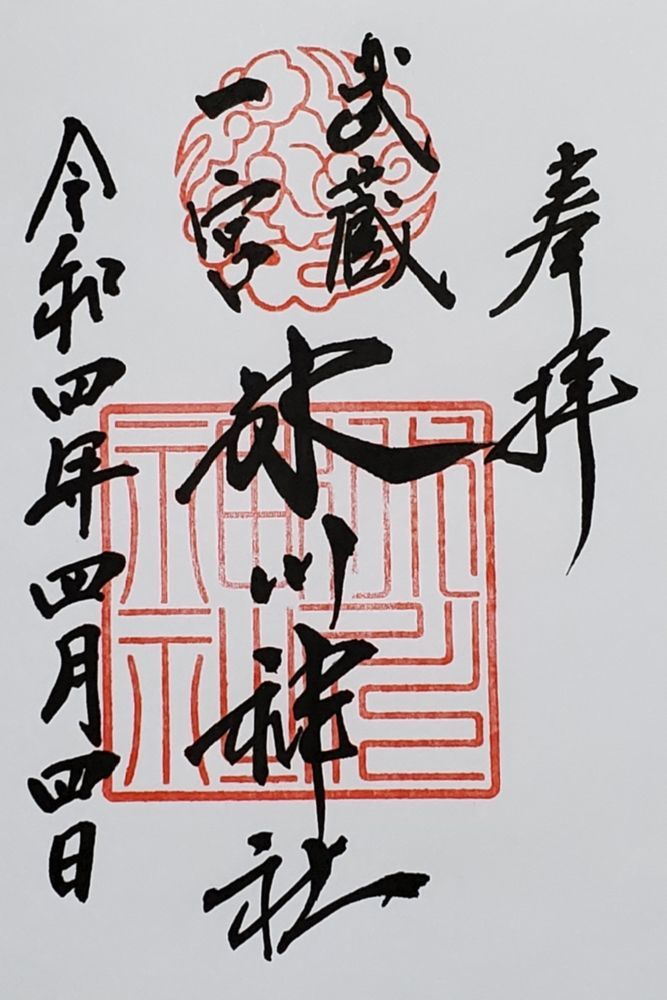 奉拝
武蔵
一宮
氷川神社
令和四年四月四日
氷川
神社